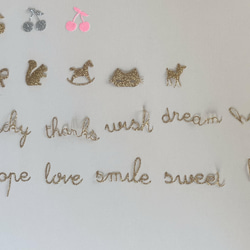 thanks wish dream
love smile sweet